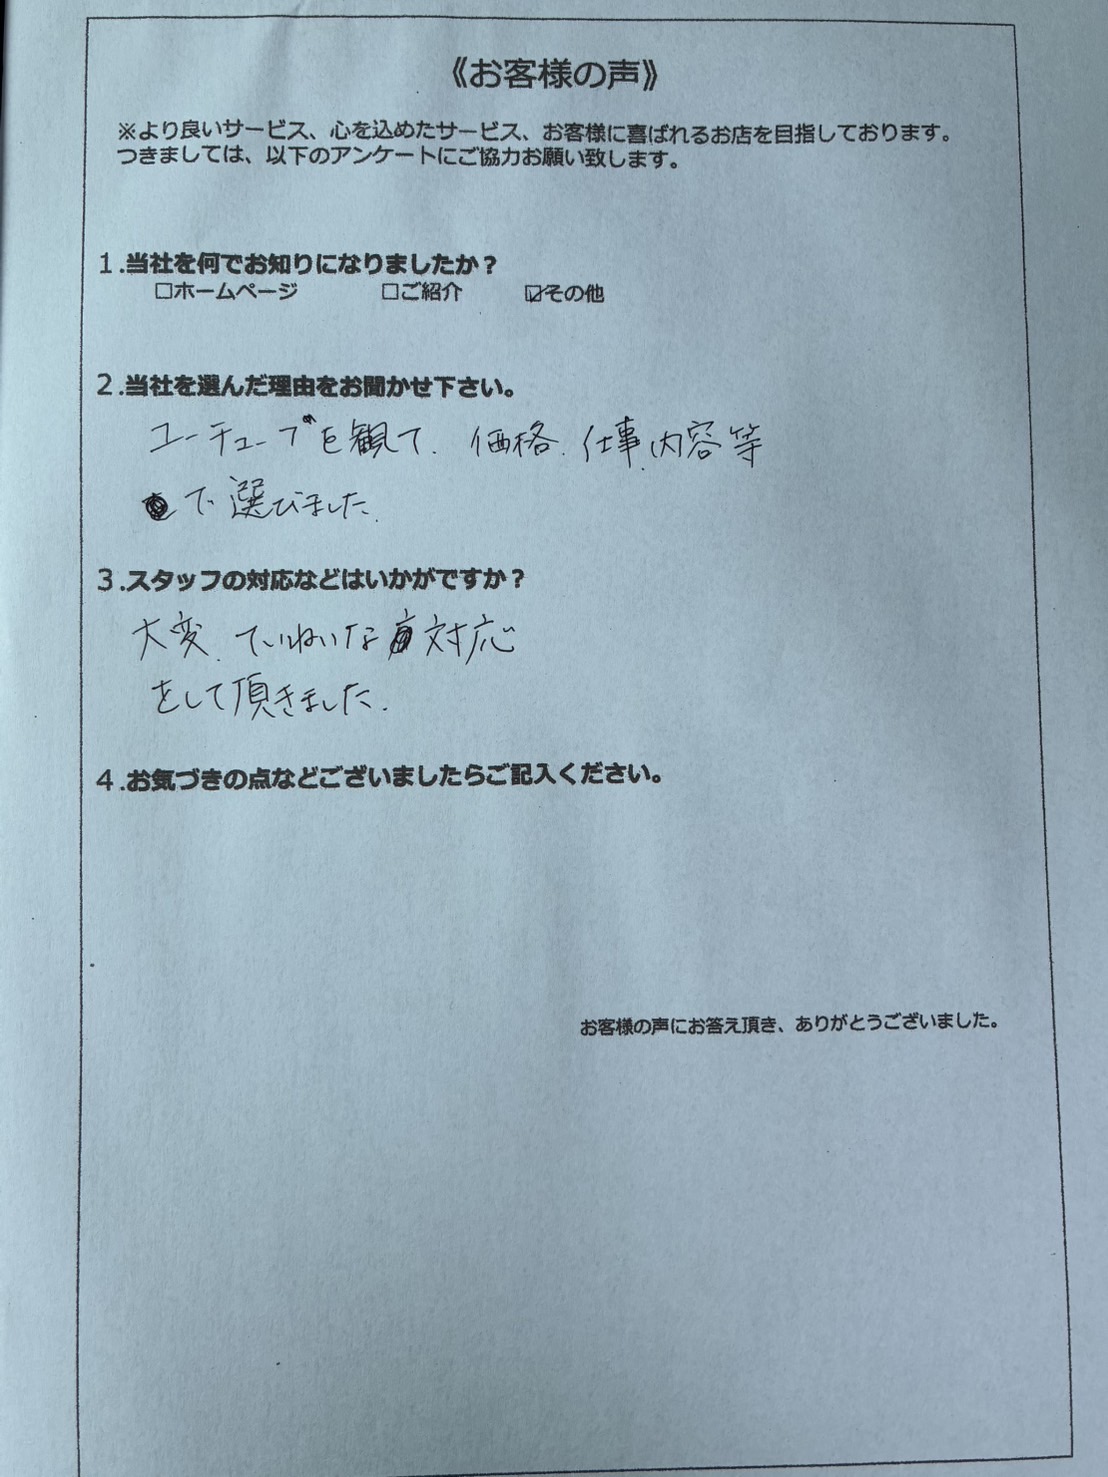 《お客様の声》
※より良いサービス、心を込めたサービス、お客様に喜ばれるお店を目指しております。
つきましては、以下のアンケートにご協力お願い致します。
1.当社を何でお知りになりましたか？
□ホームページ □ご紹介 ☑その他
2.当社を選んだ理由をお聞かせ下さい。
ユーチューブを観て、価格、仕事、内容等
で選びました。
3.スタッフの対応などはいかがですか？
大変、ていねいな対応
をして頂きました。
4.お気づきの点などございましたらご記入ください。
お客様の声にお答え頂き、ありがとうございました。